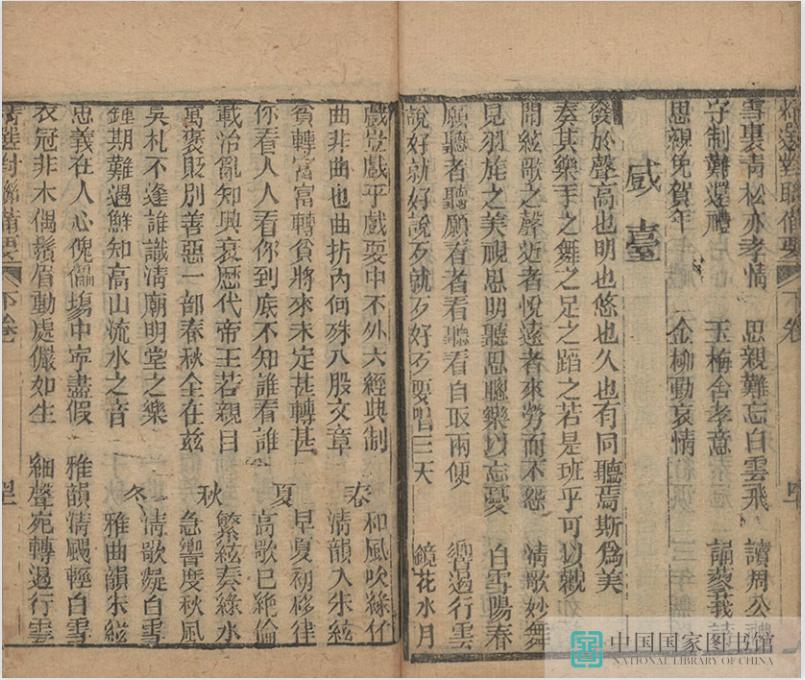 雪裏青松亦孝情　思親難忘白雲飛　讀周公
守制難還禮　玉梅含孝意　誦蓼莪
思親免賀年　金柳動哀情
戯臺
發於聲高也明也悠也久也有同聽焉斯為美
奏其樂手之舞之足之蹈之若是班乎可以觀
聞絃歌之聲近者悅遠者來勞而不怨　清歌妙舞
見羽旄之美視思明聽思聰樂以忘憂　白雪陽春
願聽者聽願看者看聽看自取兩便　響遏行雲
說好就好說歹就歹好歹要唱三天　鏡花水月
戲豈戲乎戲耍中不外六經典制　春　和風吹絲竹
曲非曲也曲折內何殊八股文章　清韻入朱絃
貧轉富富轉貧將來未定甚轉甚　夏　早夏初移律
你看人人看你到底不知誰看誰　高歌已絶倫
載治亂知興衰歷代帝王若親目　秋　繁絃奏綠水
寓褒貶別善惡一部春秋全在兹　急響度秋風
吳札不逢誰識清廟明堂之樂　冬　清歌凝白雪
鍾期難遇鮮知高山流水之音　雅曲韻朱絃
忠義在人心傀儡塲中宰盡假　雅韻清飈輕白雪
衣冠非木偶鬚眉動處儼如生　細聲宛轉遏行雲
精選對聯備要　下卷
中国国家图书馆
NATIONAL LIBRARY OF CHINA